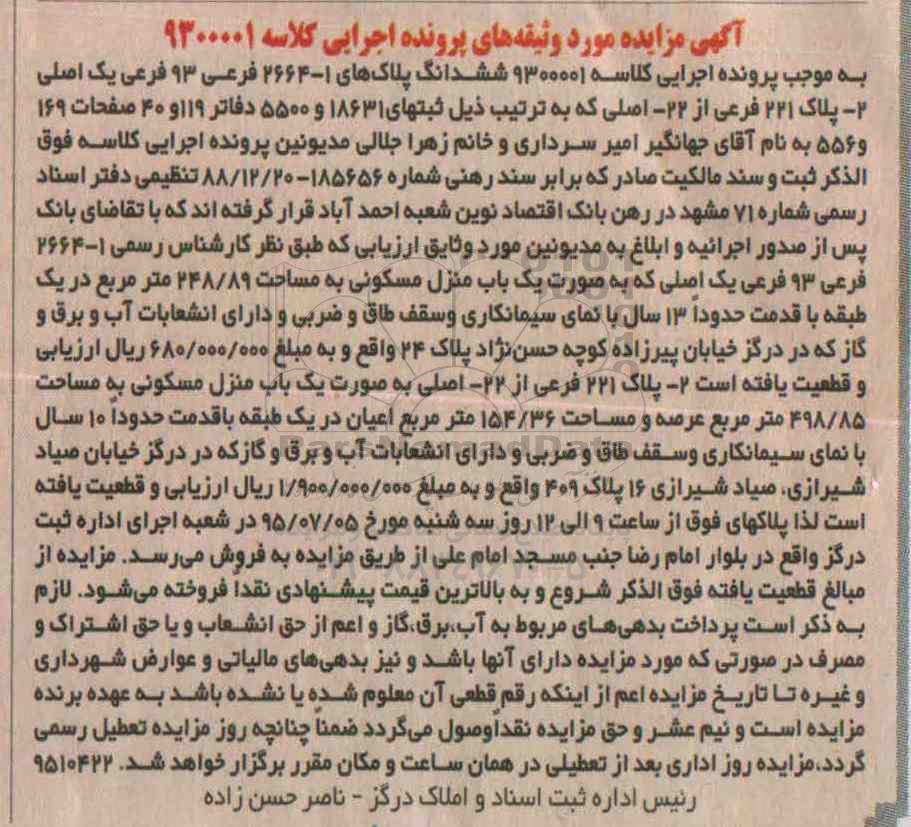 آگهی مزایده مورد وثیقه‌های پرونده اجرایی کلاسه ۹۳۰۰۰۰۱
به موجب پرونده اجرایی کلاسه ۹۳۰۰۰۰۱ ششدانگ پلاک‌های ۱-۲۶۶۴ فرعی ۹۳ فرعی یک اصلی
۲- پلاک ۲۲۱ فرعی از ۲۲- اصلی که به ترتیب ذیل ثبتهای۱۸۶۳۱ و ۵۵۰۰ دفاتر ۱۱۹و ۴۰ صفحات ۱۶۹
و۵۵۶ به نام آقای جهانگیر امیر سرداری و خانم زهرا جلالی مدیونین پرونده اجرایی کلاسه فوق
الذکر ثبت و سند مالکیت صادر که برابر سند رهنی شماره ۱۸۵۶۵۶-۸۸/۱۲/۲۰ تنظیمی دفتر اسناد
رسمی شماره ۷۱ مشهد در رهن بانک اقتصاد نوین شعبه احمد آباد قرار گرفته اند که با تقاضای بانک
پس از صدور اجرائیه و ابلاغ به مدیونین مورد وثایق ارزیابی که طبق نظر کارشناس رسمی ۱-۲۶۶۴
فرعی ۹۳ فرعی یک اصلی که به صورت یک باب منزل مسکونی به مساحت ۲۴۸/۸۹ متر مربع در یک
طبقه با قدمت حدوداً ۱۳ سال با نمای سیمانکاری وسقف طاق و ضربی و دارای انشعابات آب و برق و
گاز که در درگز خیابان پیرزاده کوچه حسن‌نژاد پلاک ۲۴ واقع و به مبلغ ۶۸۰/۰۰۰/۰۰۰ ریال ارزیابی
و قطعیت یافته است ۲- پلاک ۲۲۱ فرعی از ۲۲- اصلی به صورت یک باب منزل مسکونی به مساحت
۴۹۸/۸۵ متر مربع عرصه و مساحت ۱۵۴/۳۶ متر مربع اعیان در یک طبقه باقدمت حدوداً ۱۰ سال
با نمای سیمانکاری وسقف طاق و ضربی و دارای انشعابات آب و برق و گازکه در درگز خیابان صیاد
شیرازی، صیاد شیرازی ۱۶ پلاک ۴۰۹ واقع و به مبلغ ۱/۹۰۰/۰۰۰/۰۰۰ ریال ارزیابی و قطعیت یافته
است لذا پلاکهای فوق از ساعت ۹ الی ۱۲ روز سه شنبه مورخ ۹۵/۰۷/۰۵ در شعبه اجرای اداره ثبت
درگز واقع در بلوار امام رضا جنب مسجد امام علی از طریق مزایده به فروش می‌رسد. مزایده از
مبالغ قطعیت یافته فوق الذکر شروع و به بالاترین قیمت پیشنهادی نقدا فروخته می‌شود. لازم
به ذکر است پرداخت بدهی‌های مربوط به آب،برق،گاز و اعم از حق انشعاب و یا حق اشتراک و
مصرف در صورتی که مورد مزایده دارای آنها باشد و نیز بدهی‌های مالیاتی و عوارض شهرداری
و غیره تا تاریخ مزایده اعم از اینکه رقم قطعی آن معلوم شده یا نشده باشد به عهده برنده
مزایده است و نیم عشر و حق مزایده نقداًوصول می‌گردد ضمناً چنانچه روز مزایده تعطیل رسمی
گردد،مزایده روز اداری بعد از تعطیلی در همان ساعت و مکان مقرر برگزار خواهد شد. ۹۵۱۰۴۲۲
رئیس اداره ثبت اسناد و املاک درگز - ناصر حسن زاده